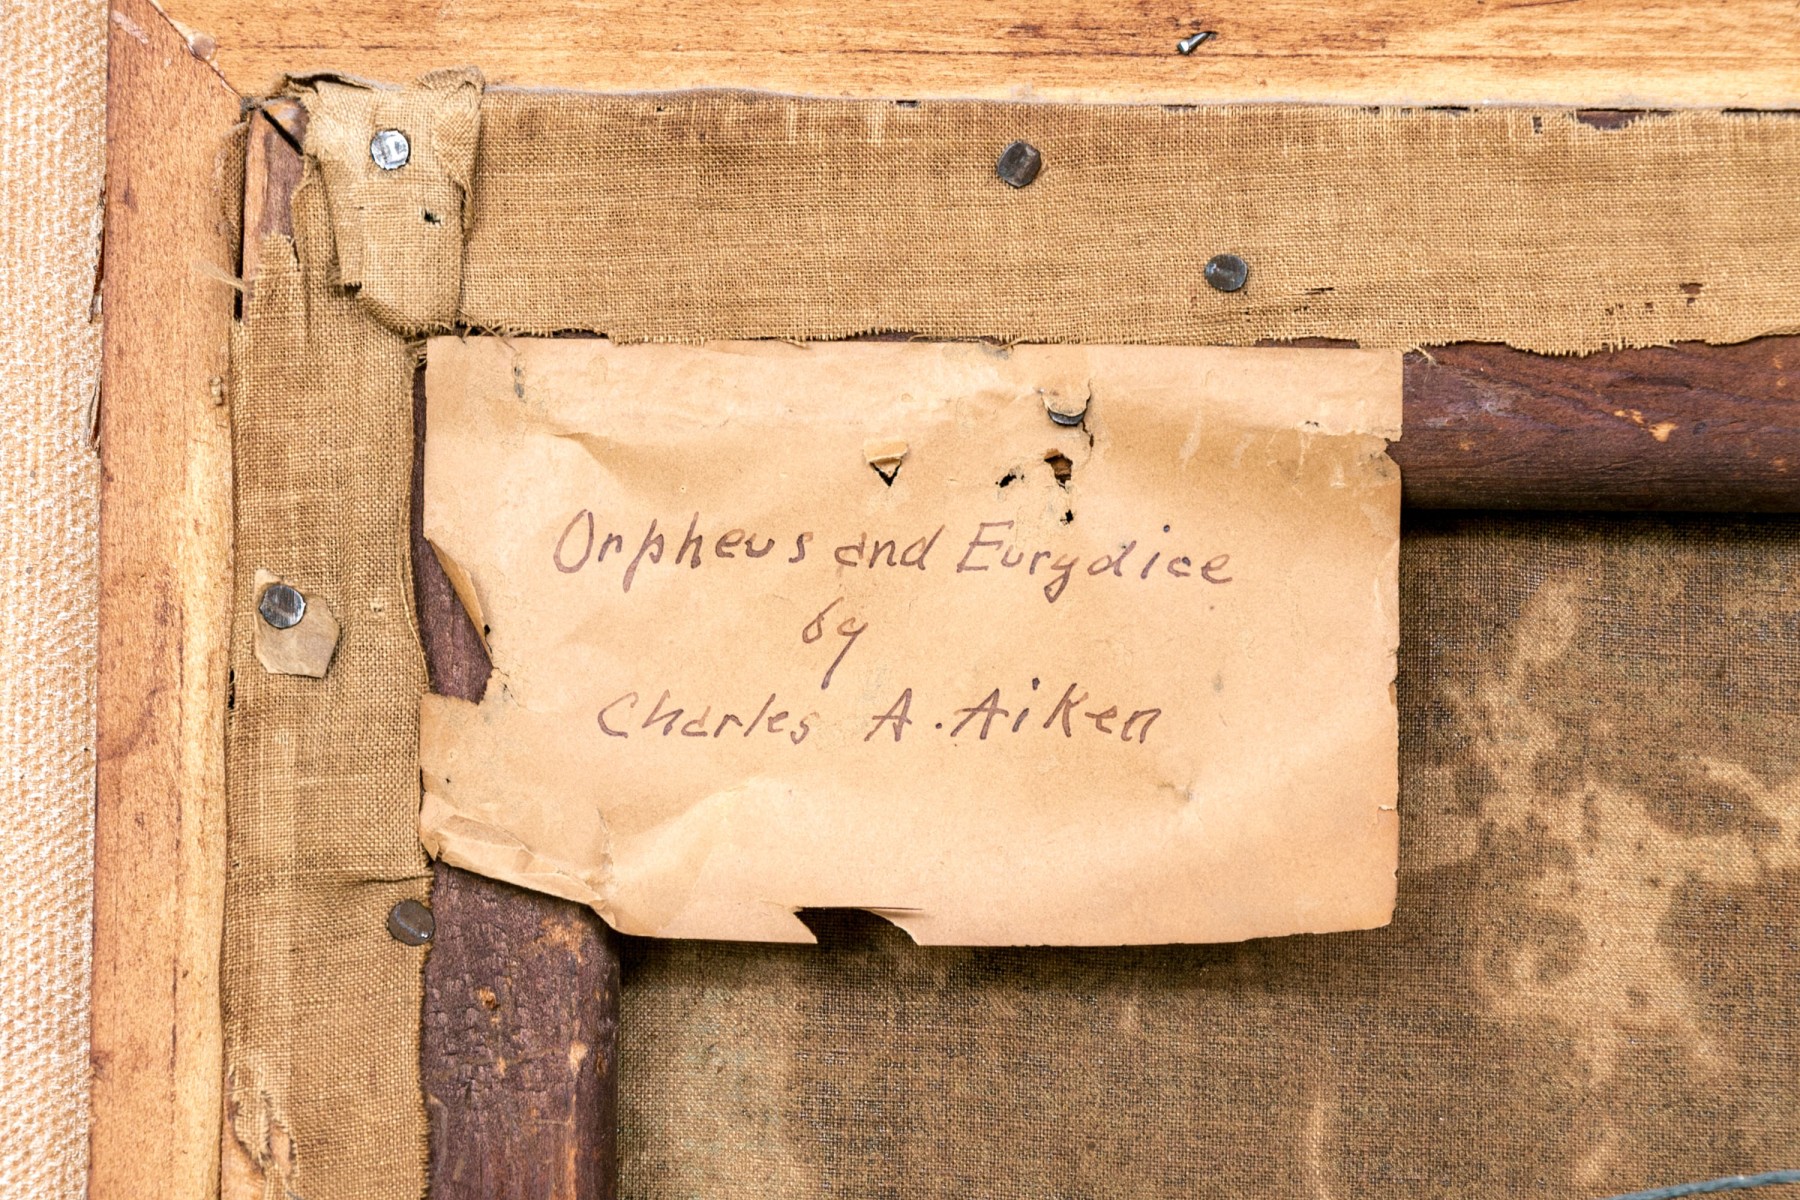 Orpheus and Eurydice
by
Charles A. Aiken